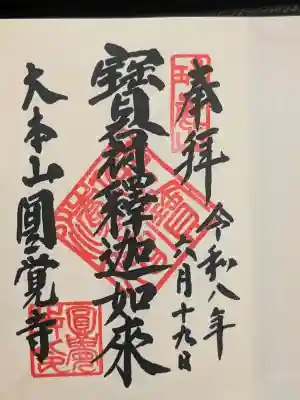 奉拝 令和八年
六月十九日
寶冠釋迦如來
大本山圓覚寺